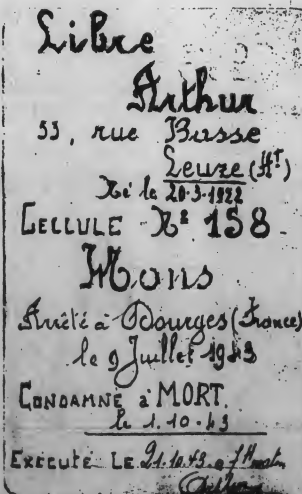 Libre
Arthur
53, rue Basse
Leuze (Hᵗ)
Né le 20-3-1922
CELLULE Nº 158
Mons
Arrêté à Bourges (France)
le 9 Juillet 1943
CONDAMNÉ à MORT.
le 1.10.43
EXECUTÉ LE 21.10.43 à 7 H